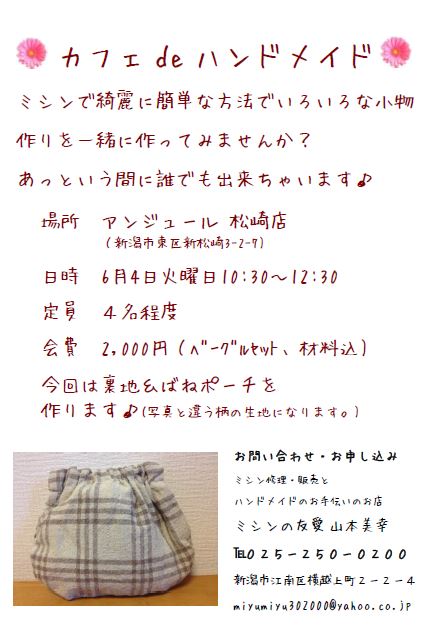 カフェ de ハンドメイド
ミシンで綺麗に簡単な方法でいろいろな小物
作りを一緒に作ってみませんか?
あっという間に誰でも出来ちゃいます♪
場所 アンジュール 松崎店
(新潟市東区新松崎3-2-7)
日時 6月4日火曜日10:30~12:30
定員 4名程度
会費 2,000円(ベーグルセット、材料込)
今回は裏地&ばねポーチを
作ります♪(写真と違う柄の生地になります。)
お問い合わせ・お申し込み
ミシン修理・販売と
ハンドメイドのお手伝いのお店
ミシンの友愛 山本美幸
℡025-250-0200
新潟市江南区横越上町2-2-4
miyumiyu302000@yahoo.co.jp